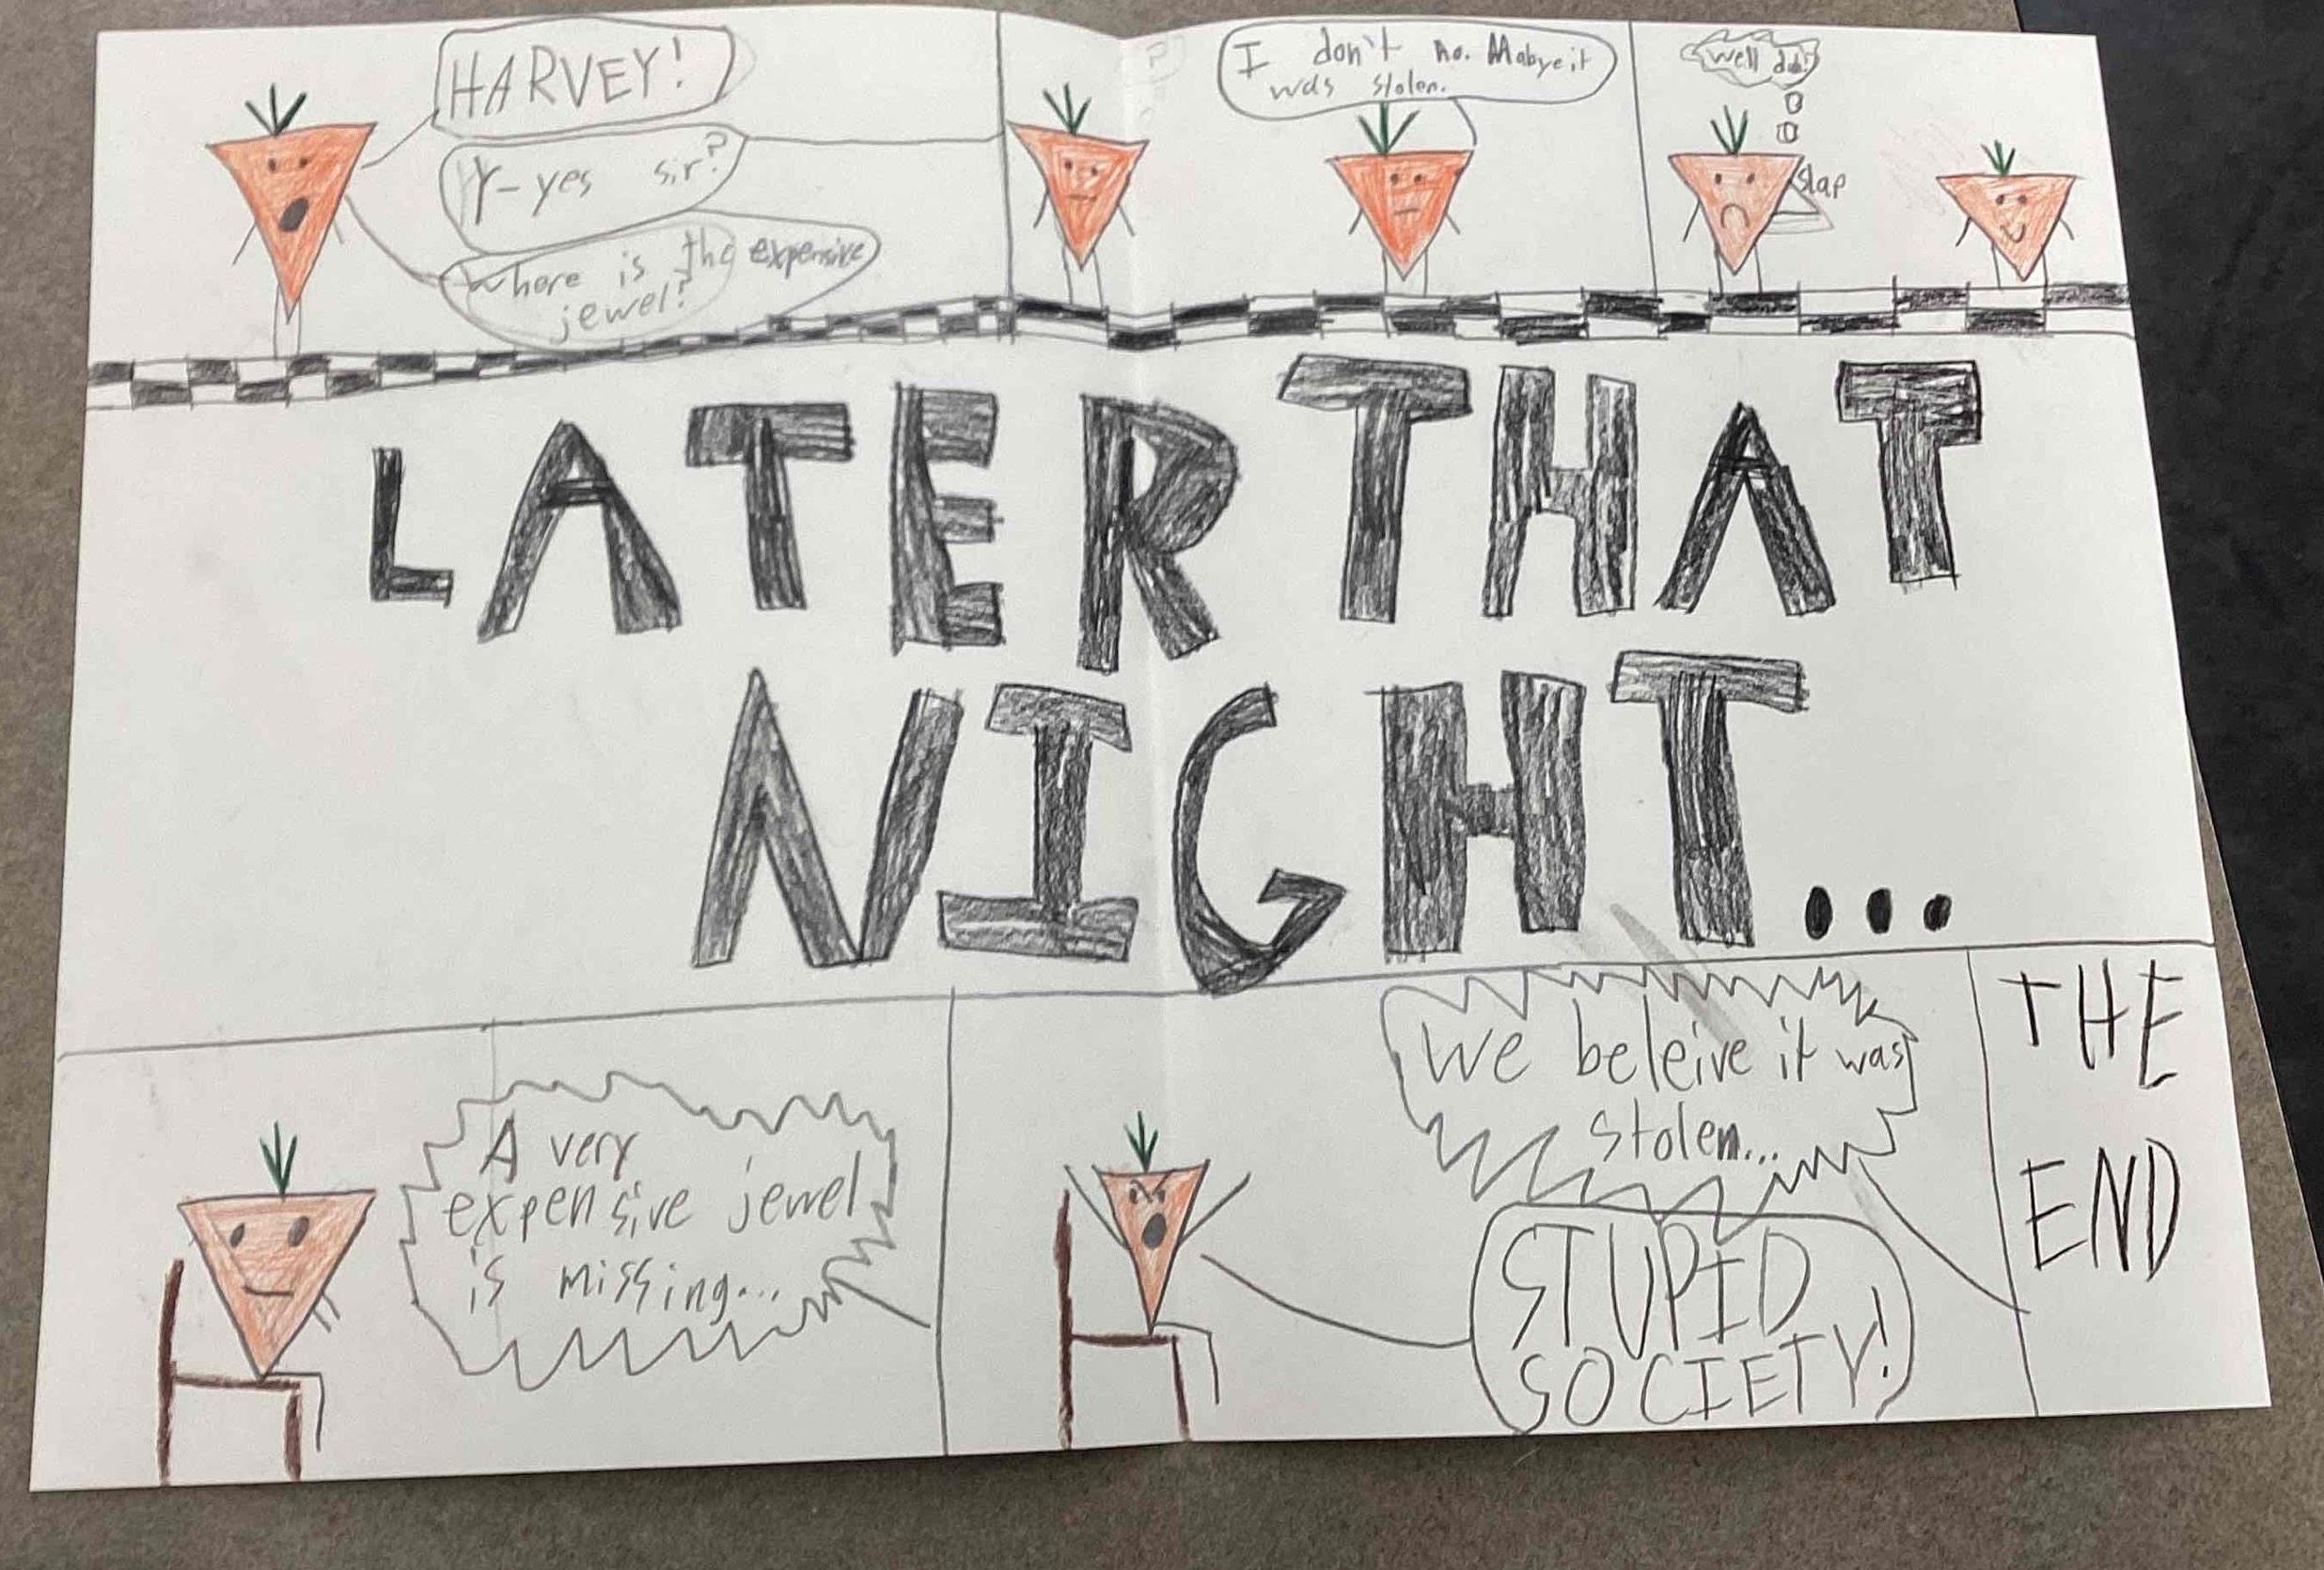 HARVEY!
Y-yes sir?
Where is the expensive
jewel?
I don't no. Mabye it
was stolen.
well duh!
slap
LATER THAT
NIGHT...
A very
expensive jewel
is missing...
We beleive it was
stolen...
STUPID
SOCIETY!
THE
END